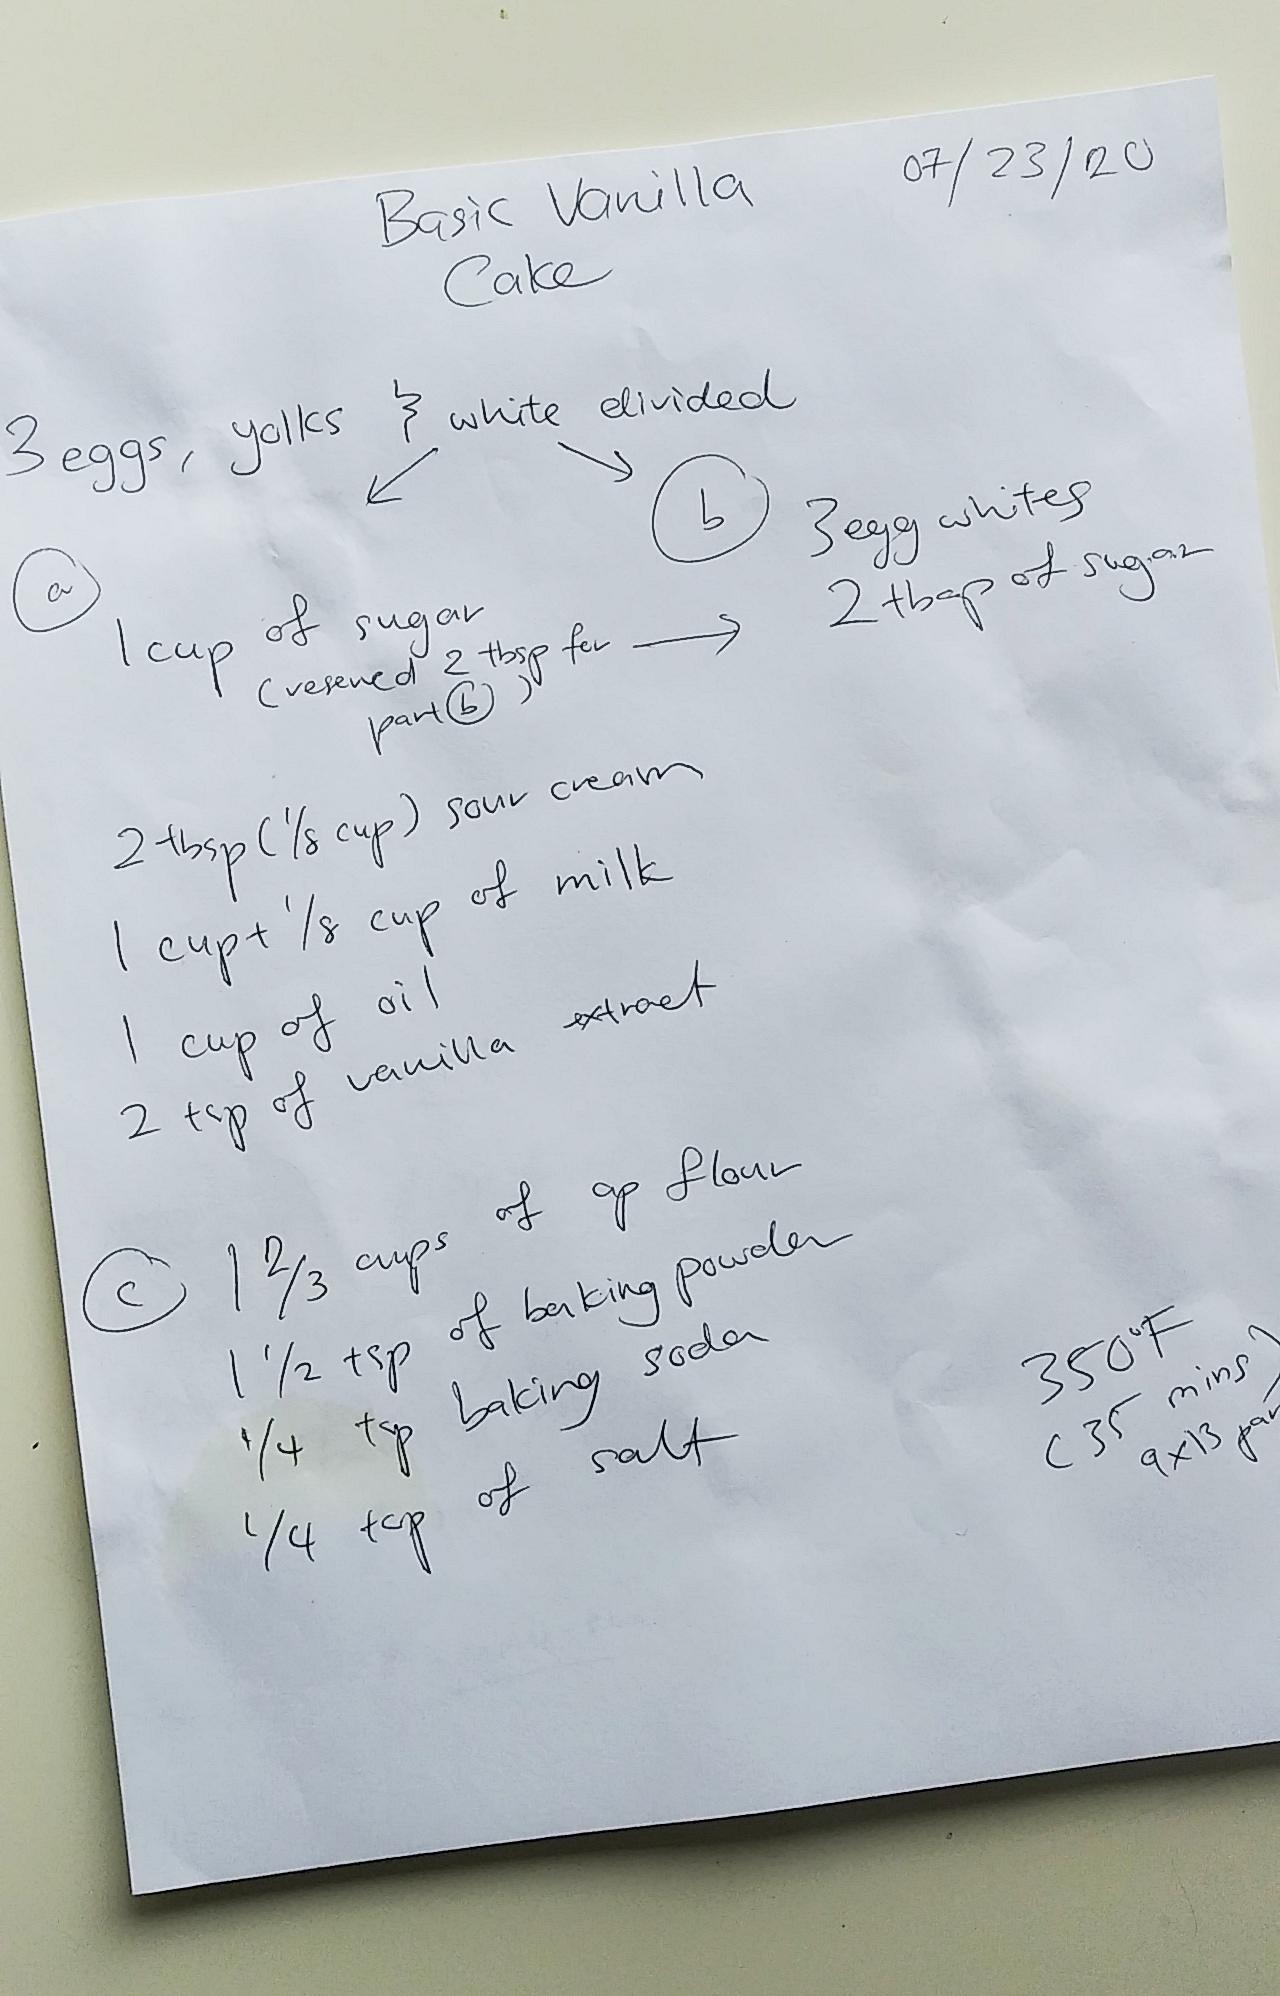 07/23/20
Basic Vanilla
Cake
3 eggs, yolks & white divided
(a)
1 cup of sugar
(reserved 2 tbsp for
part (b))
(b)
3 egg whites
2 tbsp of sugar
2 tbsp (1/8 cup) sour cream
1 cup + 1/8 cup of milk
1 cup of oil
2 tsp of vanilla extract
(c)
1 2/3 cups of ap flour
1 1/2 tsp of baking powder
1/4 tsp baking soda
1/4 tsp of salt
350°F
(35 mins)
9x13 pan